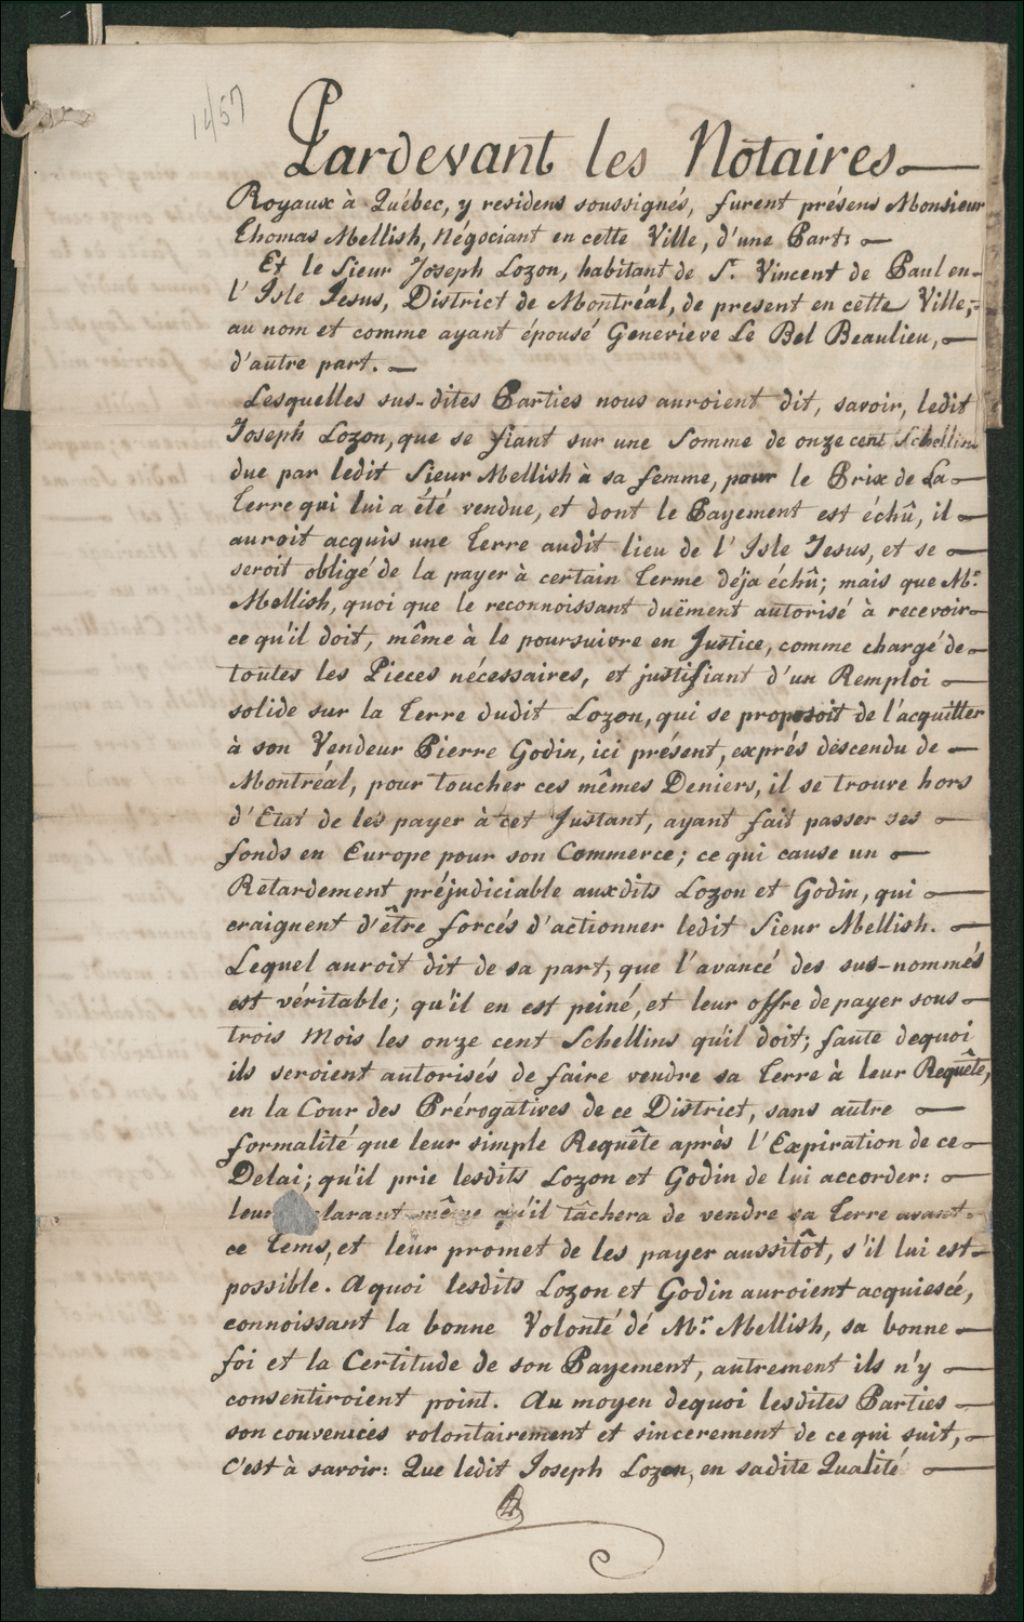 1457
Pardevant les Notaires
Royaux à Québec, y residens soussignés, furent présens Monsieur
Thomas Mellish, Négociant en cette Ville, d'une Part;
Et le Sieur Joseph Lozon, habitant de St. Vincent de Paul en
l'Isle Jesus, District de Montréal, de present en cette Ville,
au nom et comme ayant épousé Genevieve Le Bel Beaulieu,
d'autre part.
Lesquelles sus-dites Parties nous auroient dit, savoir, ledit
Joseph Lozon, que se fiant sur une Somme de onze cent Schellins
due par ledit Sieur Mellish à sa femme, pour le Prix de La
Terre qui lui a été vendue, et dont le Payement est échû, il
auroit acquis une Terre audit lieu de l'Isle Jesus, et se
seroit obligé de la payer à certain Terme déja échû; mais que Mr.
Mellish, quoi que le reconnoissant duëment autorisé à recevoir
ce qu'il doit, même à le poursuivre en Justice, comme chargé de
toutes les Pieces nécessaires, et justifiant d'un Remploi
solide sur la Terre dudit Lozon, qui se proposoit de l'acquitter
à son Vendeur Pierre Godin, ici présent, exprés descendu de
Montréal, pour toucher ces mêmes Deniers, il se trouve hors
d'Etat de les payer à cet Instant, ayant fait passer ses
fonds en Europe pour son Commerce; ce qui cause un
Retardement préjudiciable auxdits Lozon et Godin, qui
craignent d'être forcés d'actionner ledit Sieur Mellish.
Lequel auroit dit de sa part, que l'avancé des sus-nommés
est véritable; qu'il en est peiné, et leur offre de payer sous
trois Mois les onze cent Schellins qu'il doit; faute dequoi
ils seroient autorisés de faire vendre sa Terre à leur Requête,
en la Cour des Prérogatives de ce District, sans autre
formalité que leur simple Requête après l'Expiration de ce
Delai; qu'il prie lesdits Lozon et Godin de lui accorder:
leur larant même qu'il tâchera de vendre sa Terre avant
ce Tems, et leur promet de les payer aussitôt, s'il lui est
possible. A quoi lesdits Lozon et Godin auroient acquiescé,
connoissant la bonne Volonté dé Mr. Mellish, sa bonne
foi et la Certitude de son Payement, autrement ils n'y
consentiroient point. Au moyen dequoi lesdites Parties
son convenües volontairement et sincerement de ce qui suit,
C'est à savoir: Que ledit Joseph Lozon, en sadite Qualité